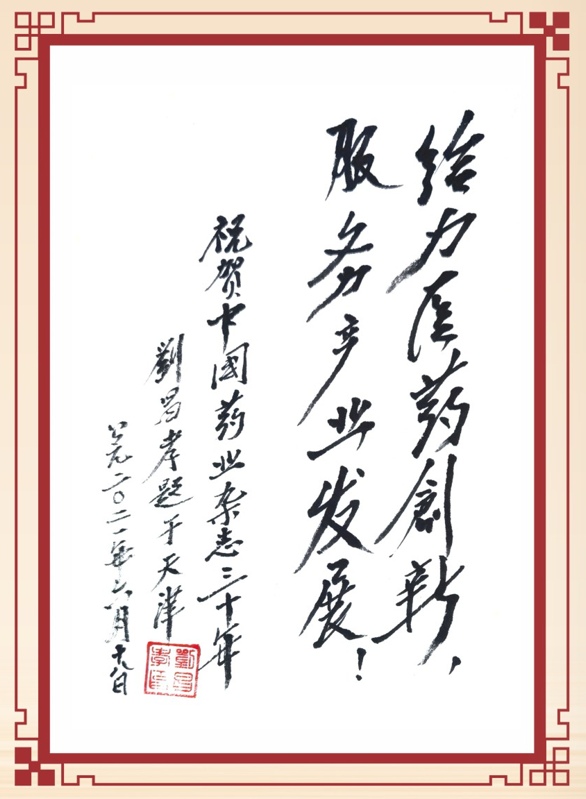 给力医药創新，
服务产业发展！
祝贺中国药业杂志三十年
劉昌孝题于天津
公元二〇二一年六月十八日